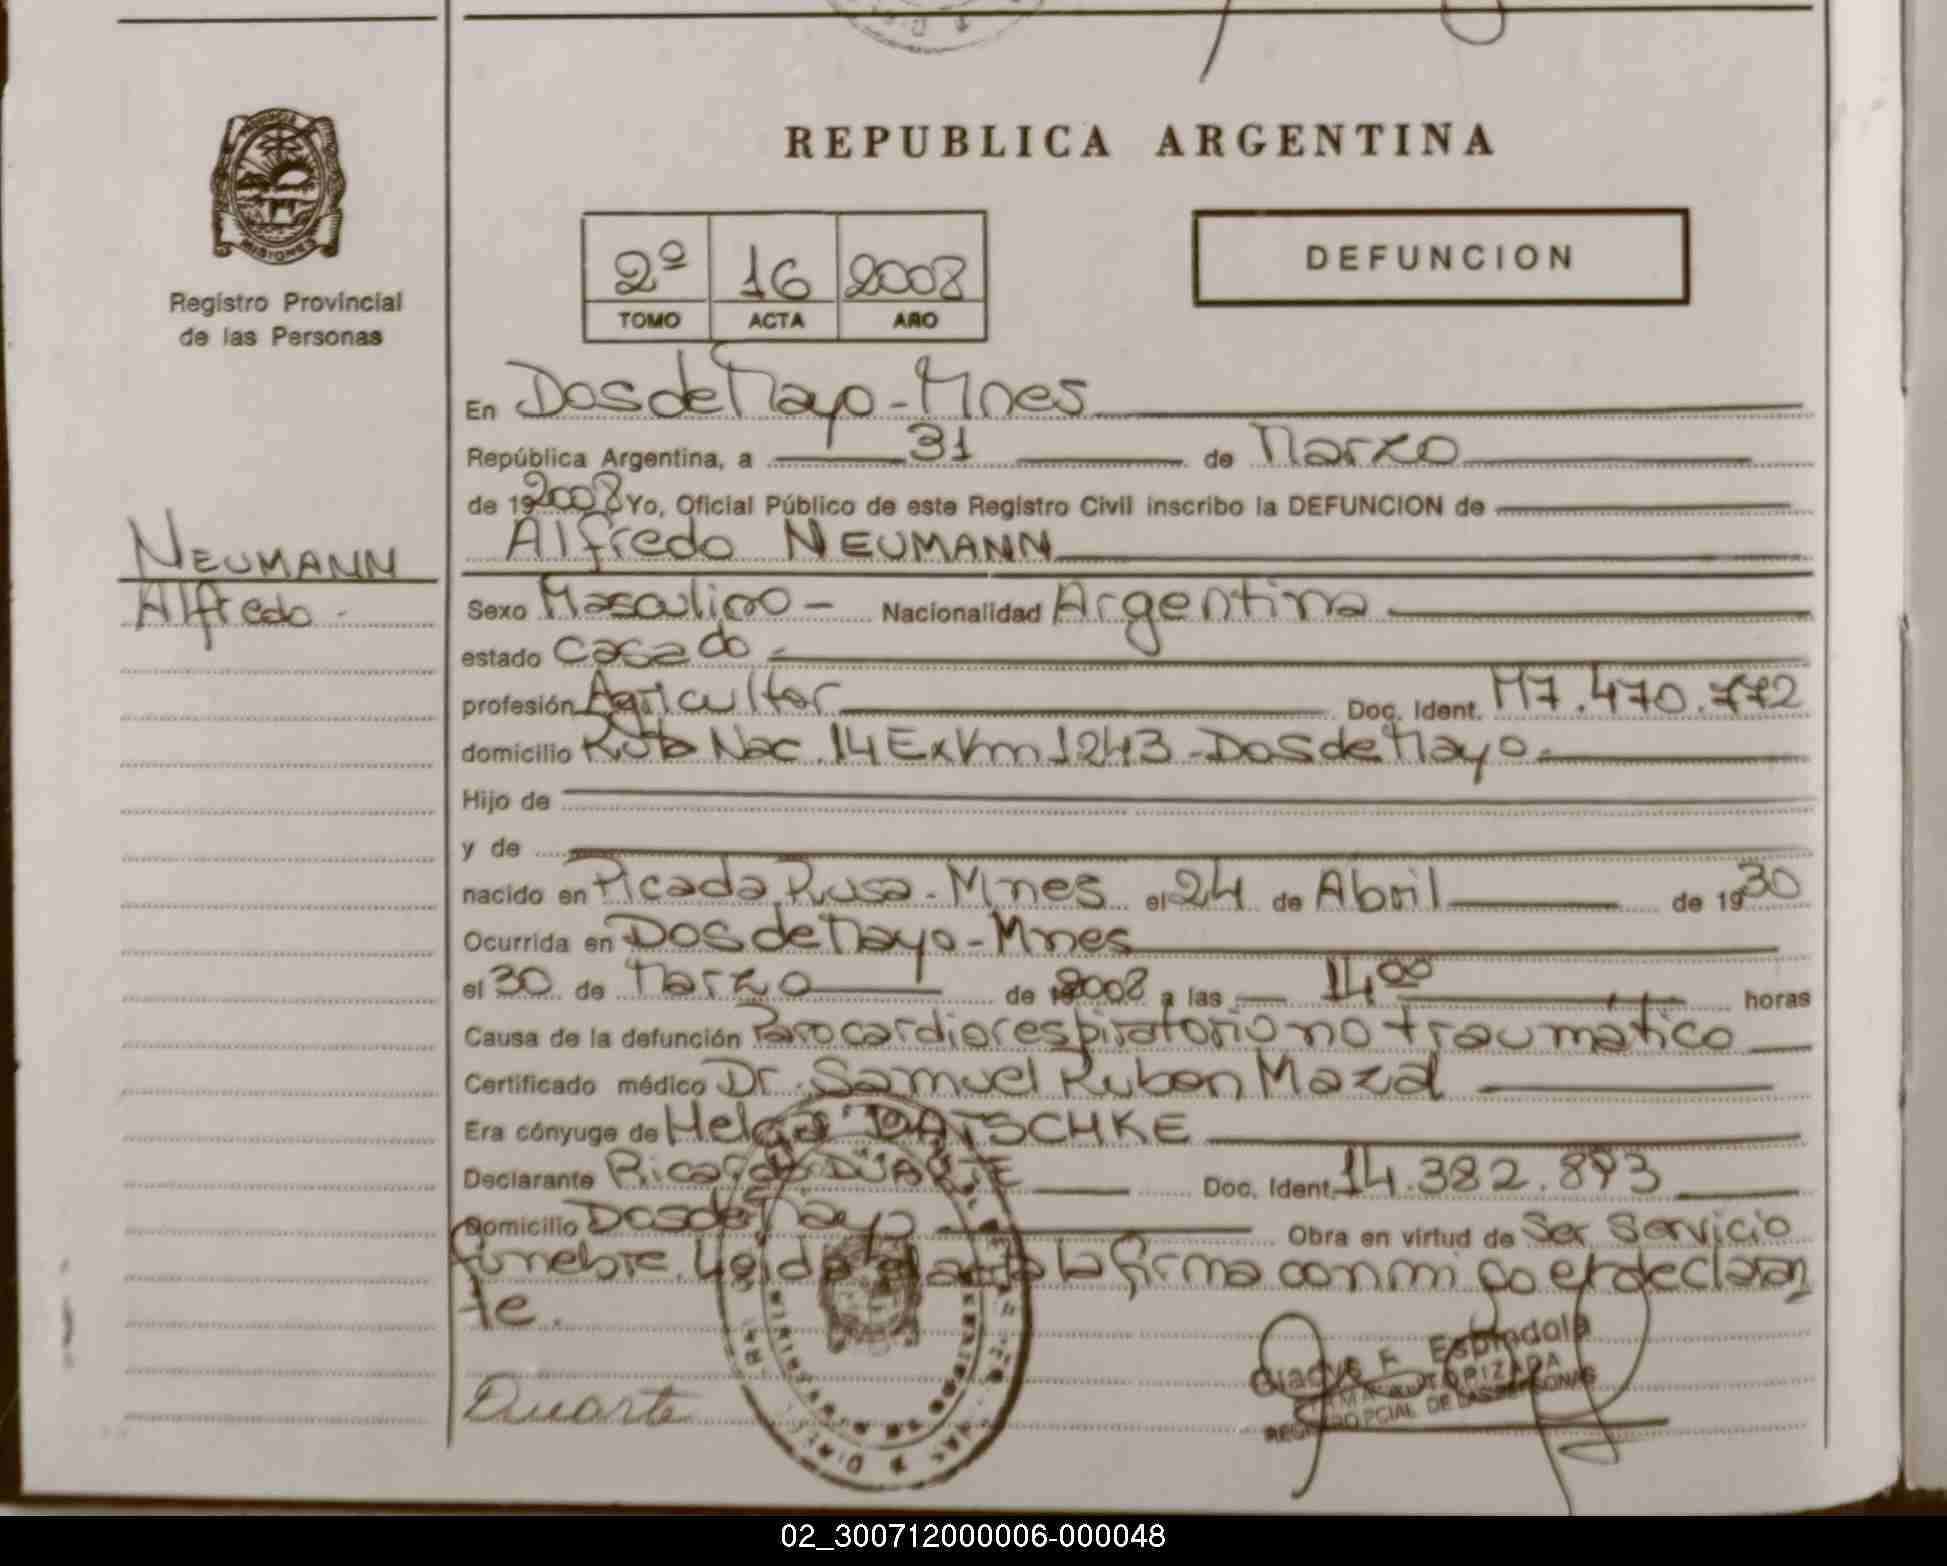 REPUBLICA ARGENTINA
MISIONES
Registro Provincial
de las Personas
2º 16 2008
TOMO ACTA AÑO
DEFUNCION
En Dos de Mayo - Mnes
República Argentina, a 31 de Marzo
de 19 2008 Yo, Oficial Público de este Registro Civil inscribo la DEFUNCION de
Alfredo NEUMANN
NEUMANN
Alfredo -
Sexo Masculino - Nacionalidad Argentina
estado casado -
profesión Agricultor Doc. Ident. M7.470.772
domicilio Ruta Nac. 14 ExKm 1243 - Dos de Mayo -
Hijo de
y de
nacido en Picada Rusa - Mnes el 24 de Abril de 19 30
Ocurrida en Dos de Mayo - Mnes
el 30 de Marzo de 2008 a las 14 00 horas
Causa de la defunción Paro cardiorespiratorio no traumático
Certificado médico Dr. Samuel Ruben Mazal
Era cónyuge de Helga DATSCHKE
Declarante Ricardo DUARTE Doc. Ident. 14.382.893
Domicilio Dos de Mayo Obra en virtud de Ser Servicio
fúnebre. Leida el acta la firma conmigo el declaran
te.
Duarte
Gladys F. Espindola
FIRMA AUTORIZADA
REGISTRO PCIAL DE LAS PERSONAS
02_300712000006-000048